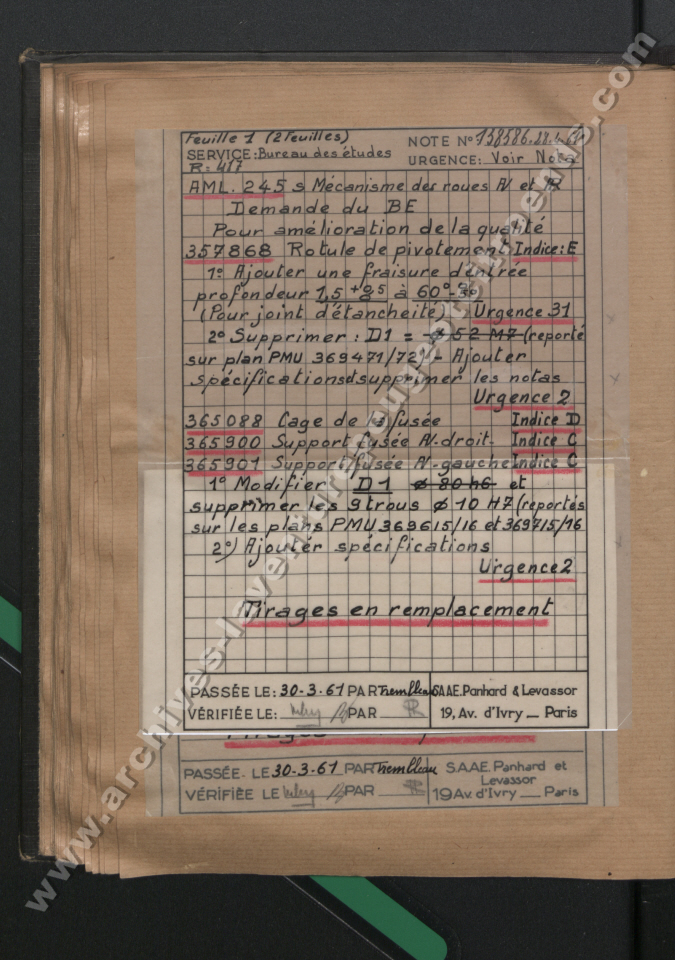 Feuille 1 (2 Feuilles)
NOTE N° 138586
SERVICE: Bureau des études
URGENCE: Voir Nota
R: 417
AML. 245 s Mécanisme des roues AV et AR
Demande du BE
Pour amélioration de la qualité
357868 Rotule de pivotement Indice: E
1° Ajouter une fraisure d'entrée
profondeur 1,5 à 60°
(Pour joint d'étancheité) Urgence 31
2° Supprimer: D1 = ø 52 M7 (reporté
sur plan PMU 369471/72) - Ajouter
spécifications et supprimer les notas
Urgence 2
365088 Cage de fusée Indice D
365900 Support fusée AV-droit- Indice C
365901 Support fusée AV-gauche Indice C
1° Modifier D1 ø 80 h6 et
supprimer les 9 trous ø 10 H7 (reportés
sur les plans PMU 369615/16 et 369715/16
2°) Ajouter spécifications
Urgence 2
Tirages en remplacement
PASSÉE LE: 30-3-61 PAR Trembleau S.A.A.E. Panhard & Levassor
VÉRIFIÉE LE: PAR 19, Av. d'Ivry _ Paris
Tirages
PASSÉE LE 30-3-61 PAR Trembleau S.A.A.E. Panhard et
Levassor
VÉRIFIÉE LE PAR 19 Av. d'Ivry __ Paris